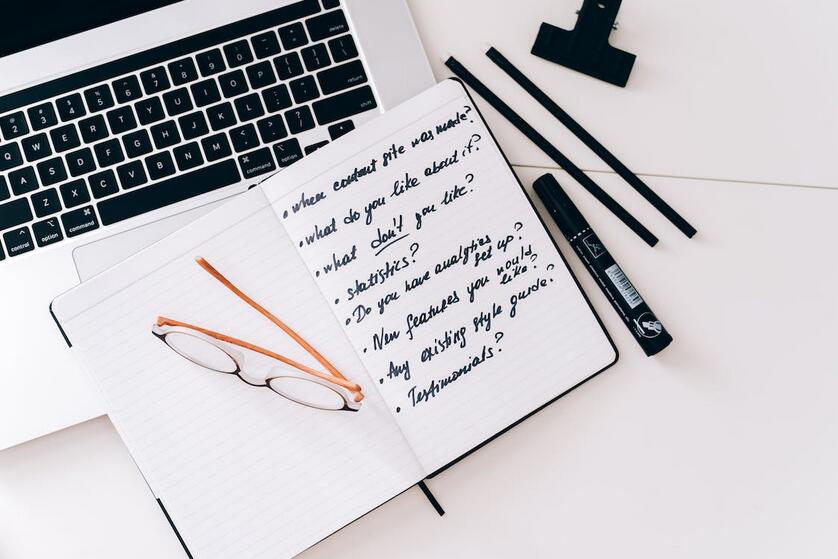 2 3 4 5 6 7 8 9 0 delete
Q W E R T Y U I O P
A S D F G H J K L return
Z X C V B N M
control option command command option
• when content site was made?
• what do you like about it?
• what don't you like?
• statistics?
• Do you have analytics
set up?
• New features you would
like?
• Any existing style guide?
• Testimonials?